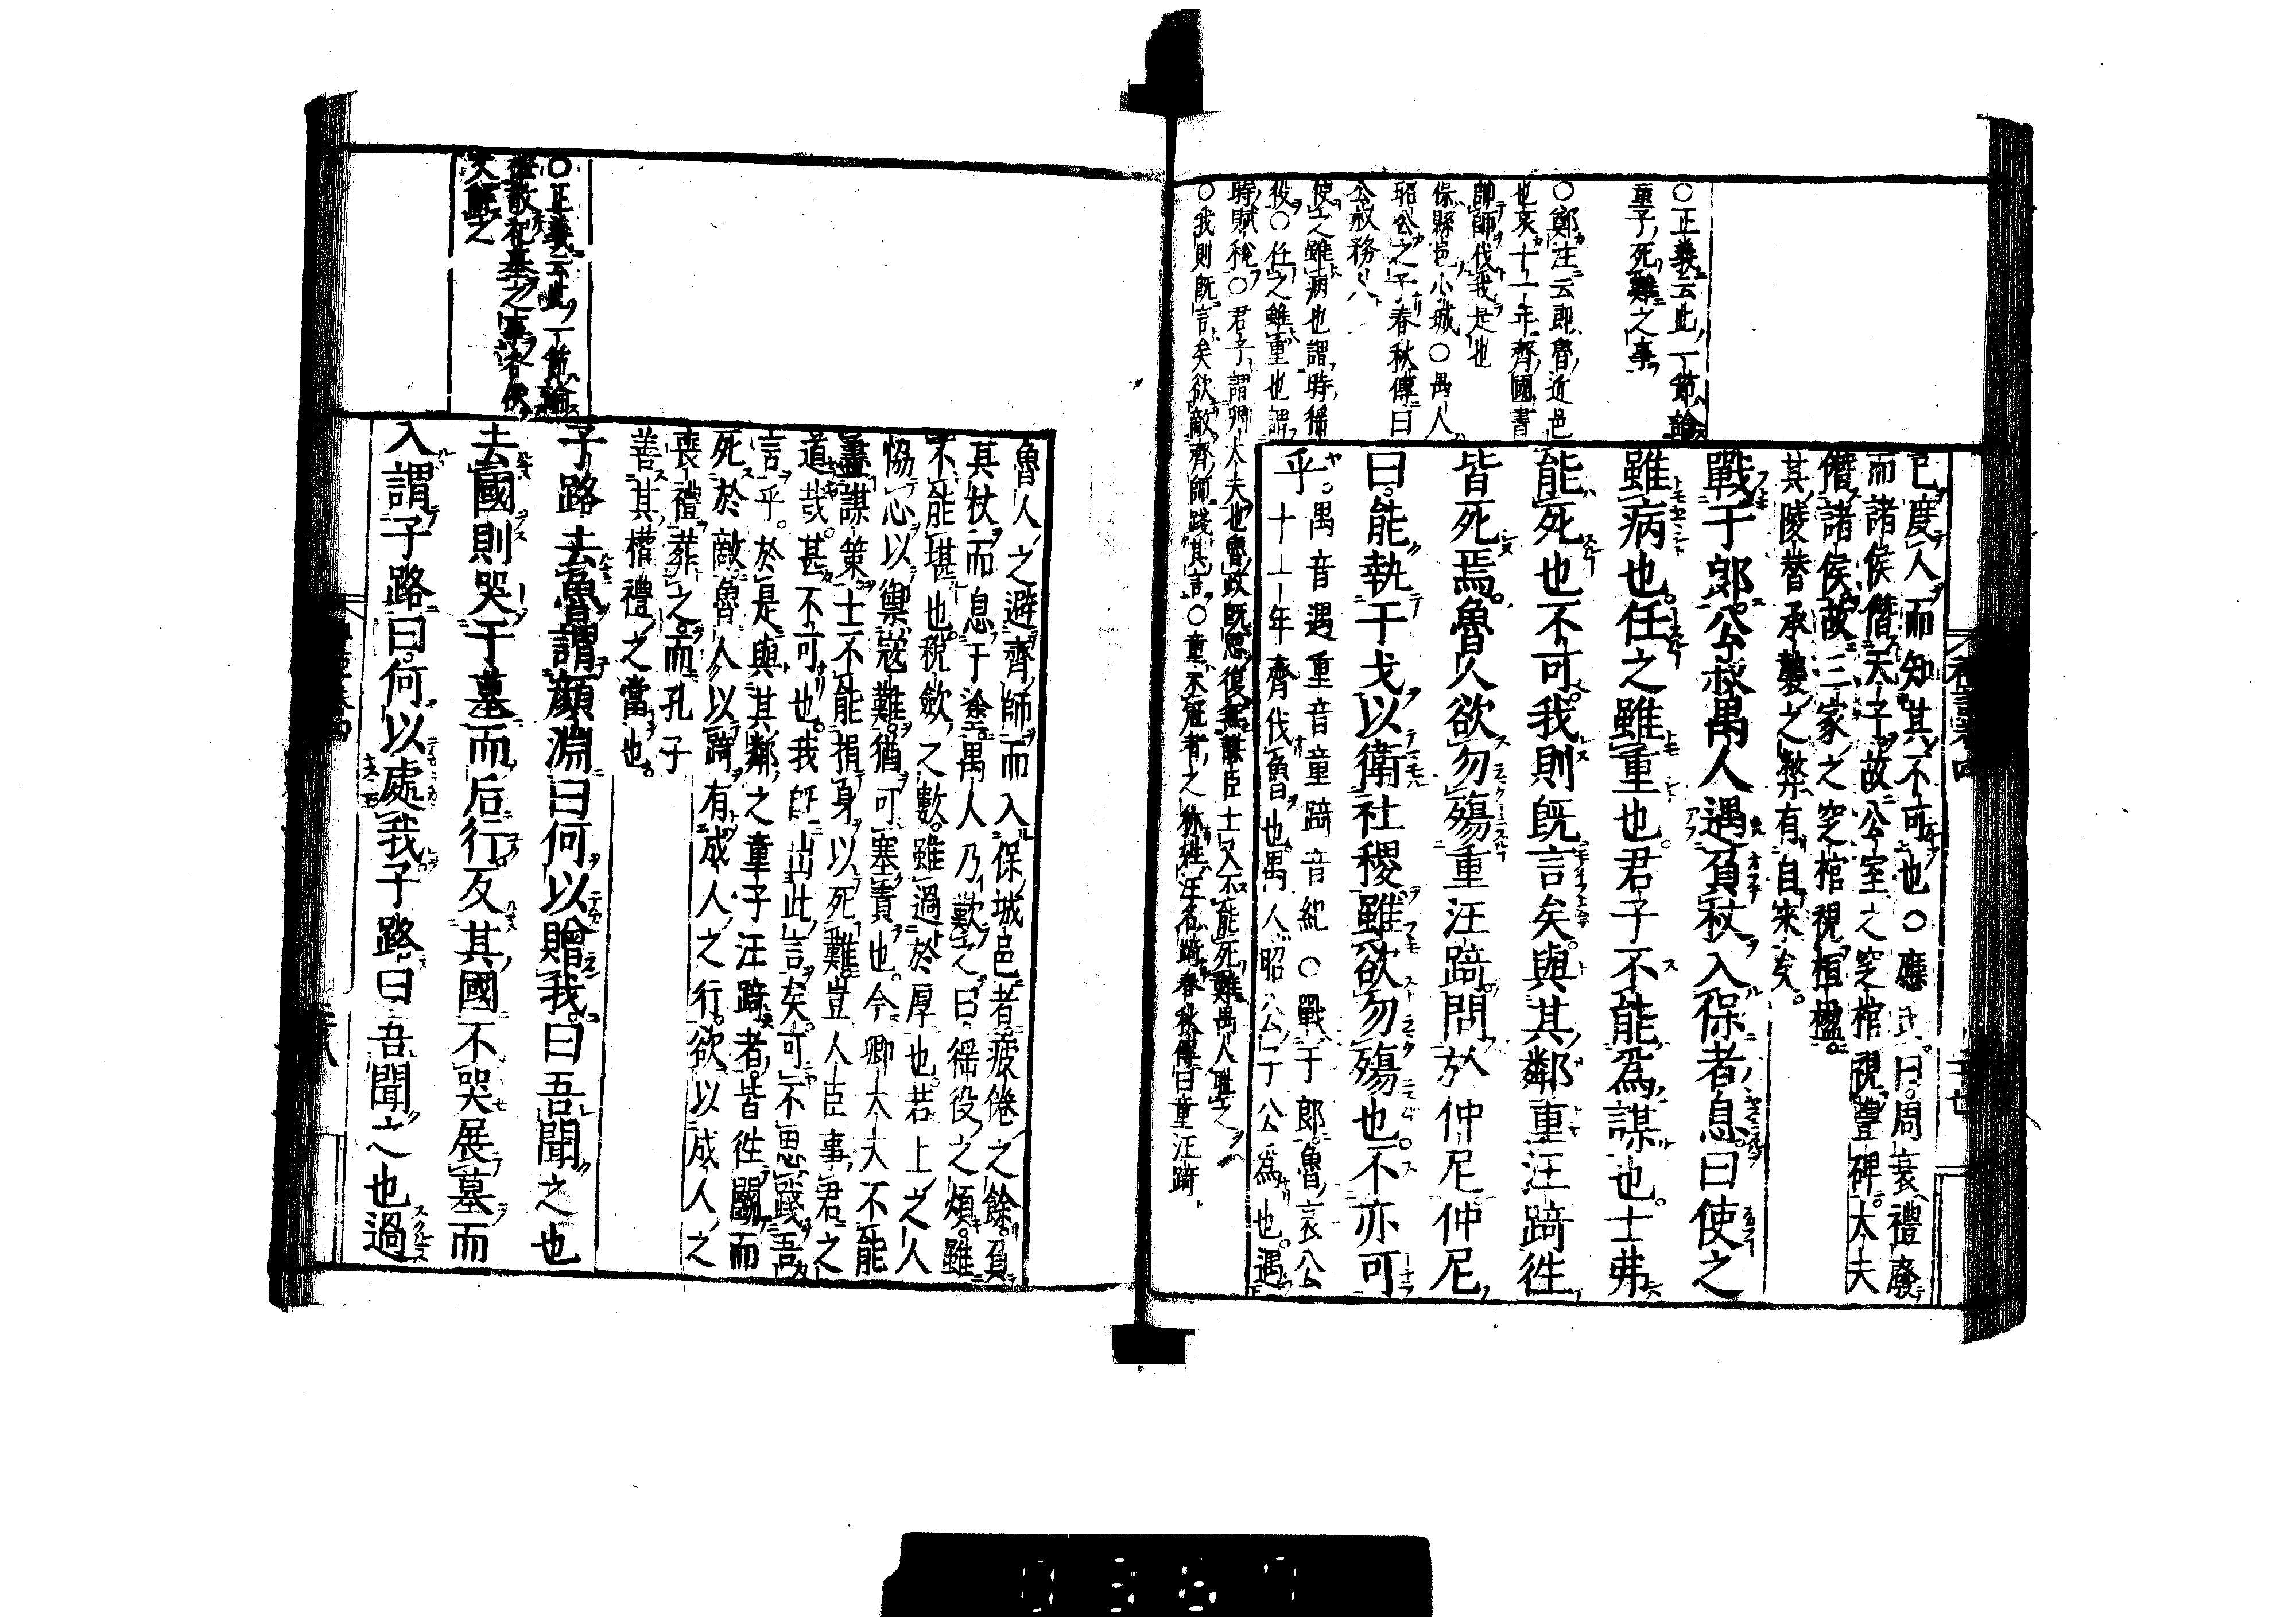 ○正義云此一節論
童子死難之事
○鄭注云郎魯近邑
也哀十一年齊國書
帥師伐我是也
保縣邑小城○禺人
昭公之子春秋傳曰
公叔務人
使之雖病也謂時徭
役○任之雖重也謂
時賦稅○君子謂卿大夫也魯政既惡復無謀臣士又不能死難禺人耻之
○我則既言矣欲敵齊師踐其言○重不冠者之稱姓汪名踦春秋傳曰童汪踦
已度人而知其不可也○應氏曰周衰禮廢
而諸侯僭天子故公室之窆棺視豐碑大夫
僭諸侯故三家之窆棺視桓楹
其陵替承襲之弊有自來矣
戰于郎公叔禺人遇負杖入保者息曰使之
雖病也任之雖重也君子不能爲謀也士弗
能死也不可我則既言矣與其鄰重汪踦徃
皆死焉魯人欲勿殤重汪踦問於仲尼仲尼
曰能執干戈以衛社稷雖欲勿殤也不亦可
乎 禺音遇重音童踦音紀○戰于郎魯哀公
十一年齊伐魯也禺人昭公子公爲也遇
魯人之避齊師而入保城邑者疲倦之餘負
其杖而息于塗禺人乃歎之曰徭役之煩雖
不能堪也稅斂之數雖過於厚也若上之人
恊心以禦寇難猶可塞責也今卿大夫不能
畫謀策士不能捐身以死難豈人臣事君之
道哉甚不可也我旣出此言矣可不思踐吾
言乎於是與其鄰之童子汪踦者皆徃鬭而
死於敵魯人以踦有成人之行欲以成人之
喪禮葬之而孔子
善其權禮之當也
○正義云此一節論
禮敬祀墓之事各依
文解之
子路去魯謂顏淵曰何以贈我曰吾聞之也
去國則哭于墓而后行反其國不哭展墓而
入謂子路曰何以處我子路曰吾聞之也過